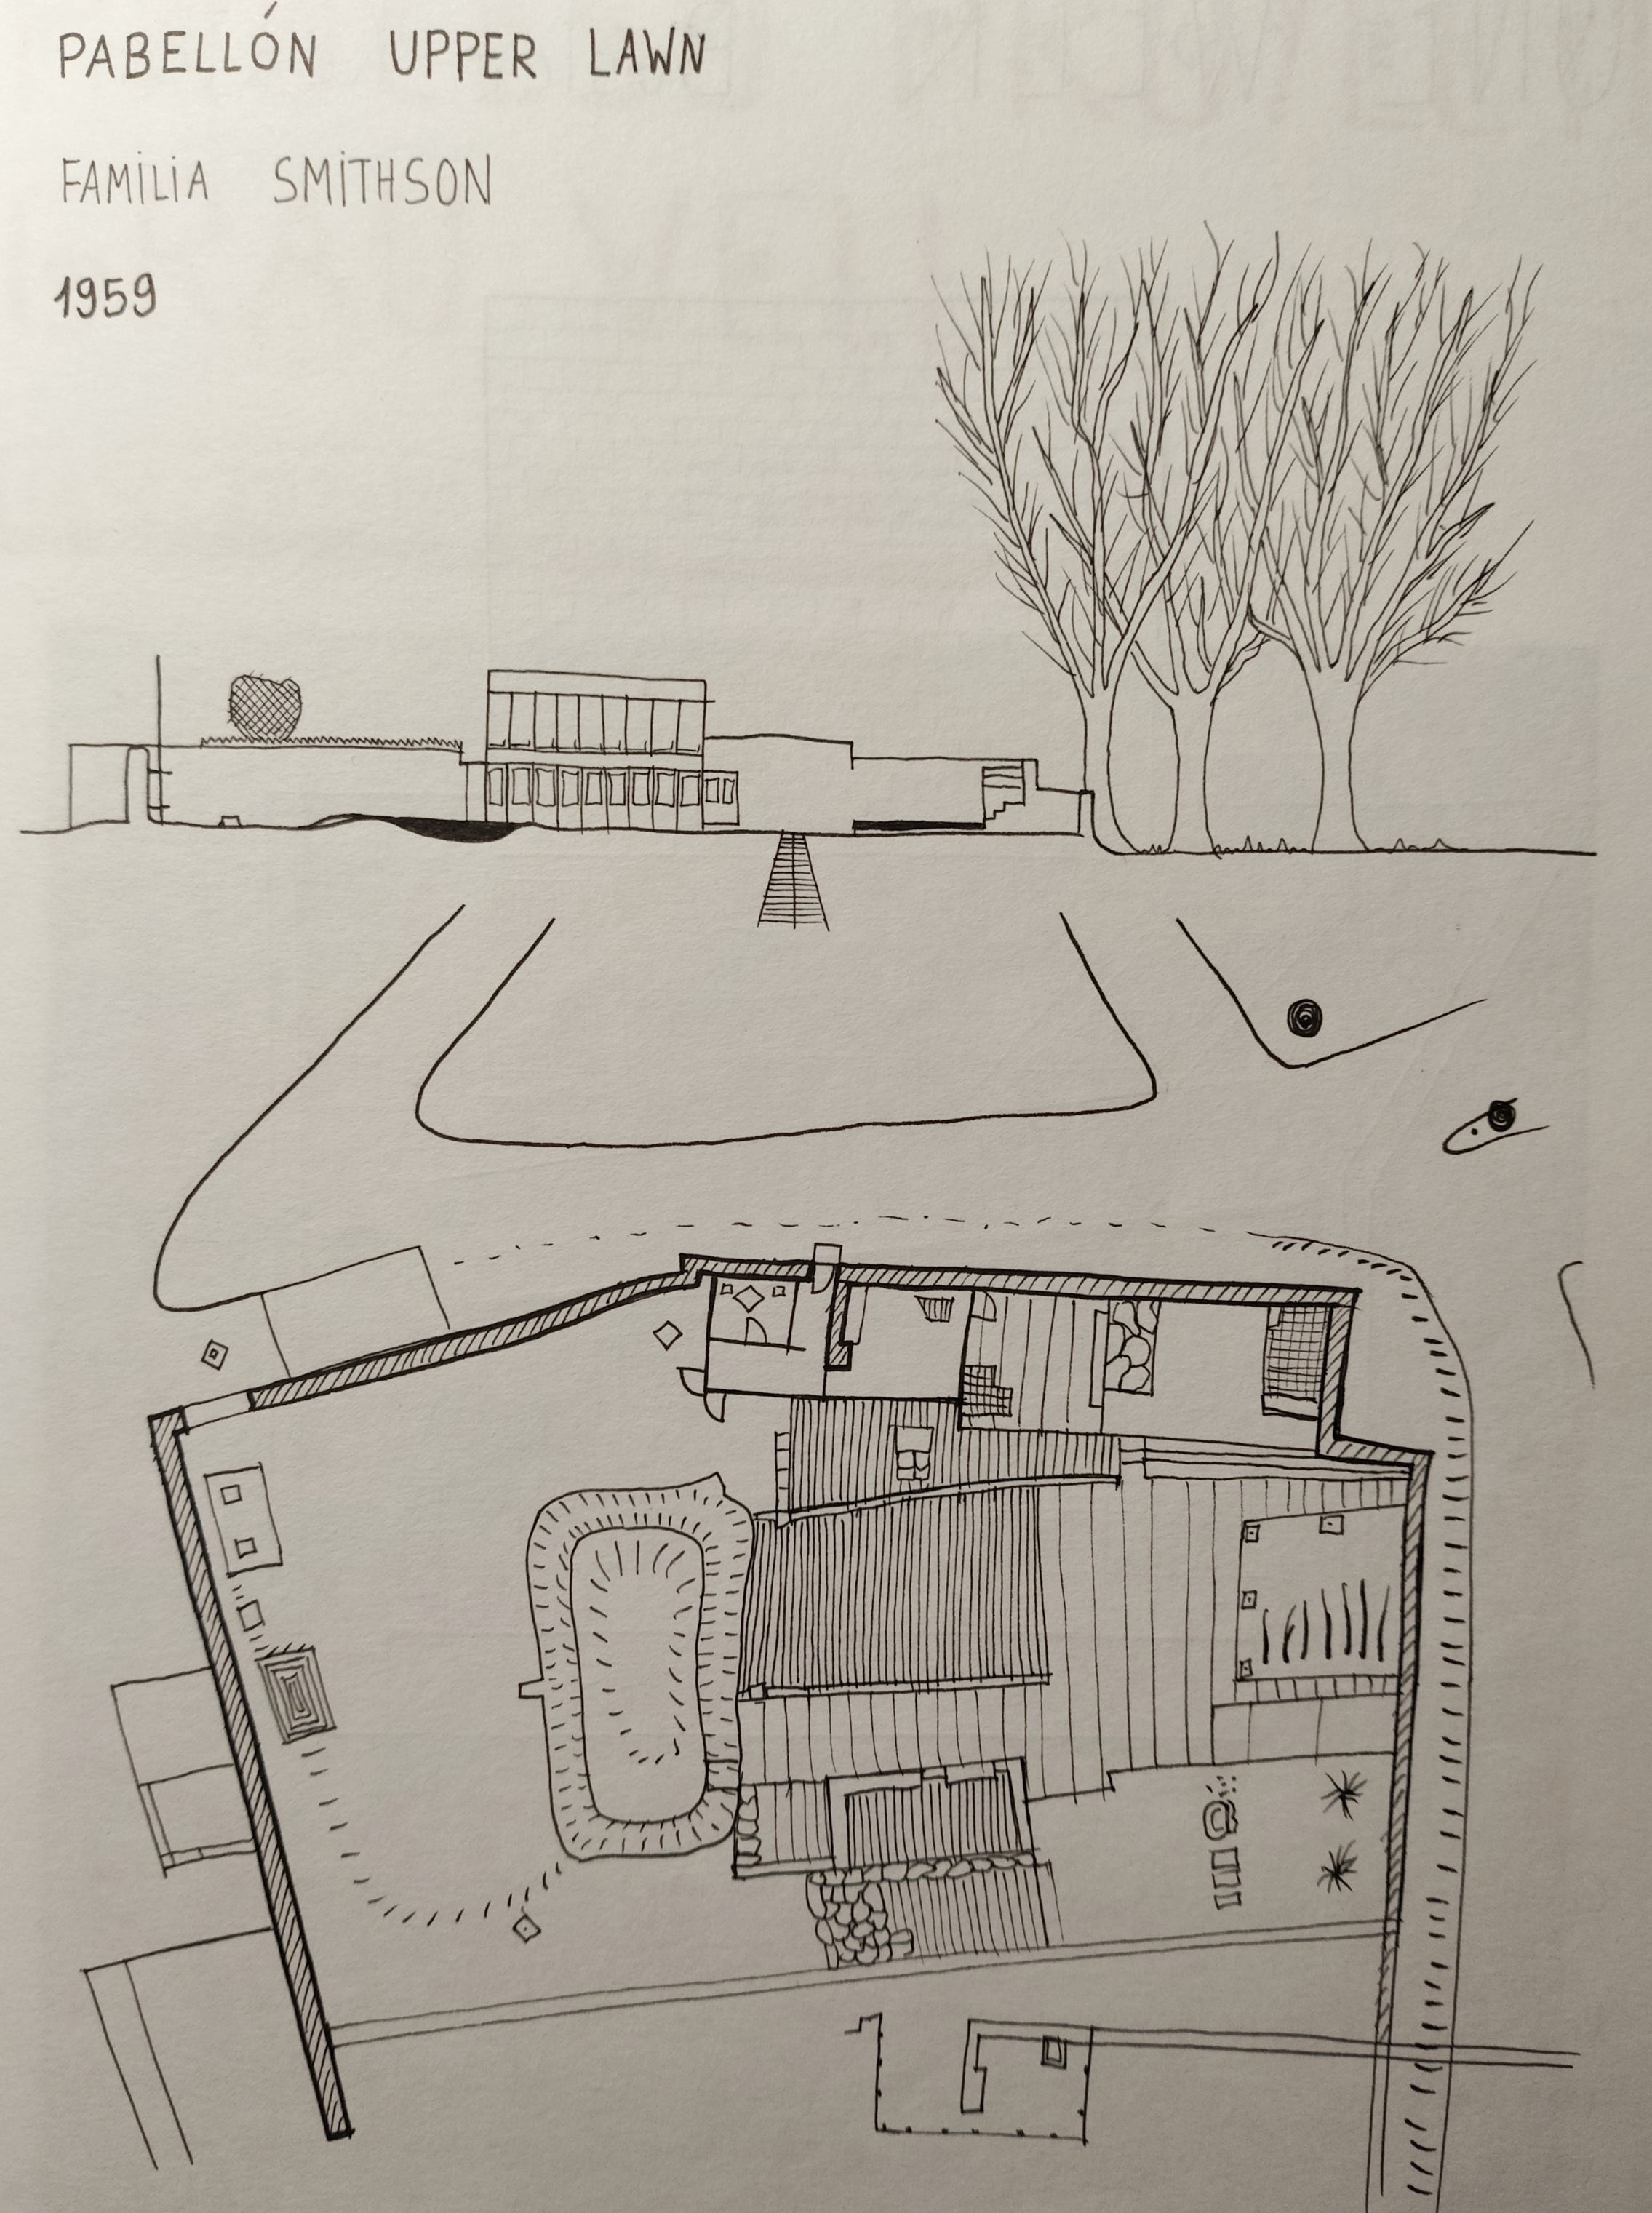 PABELLÓN UPPER LAWN
FAMILIA SMITHSON
1959